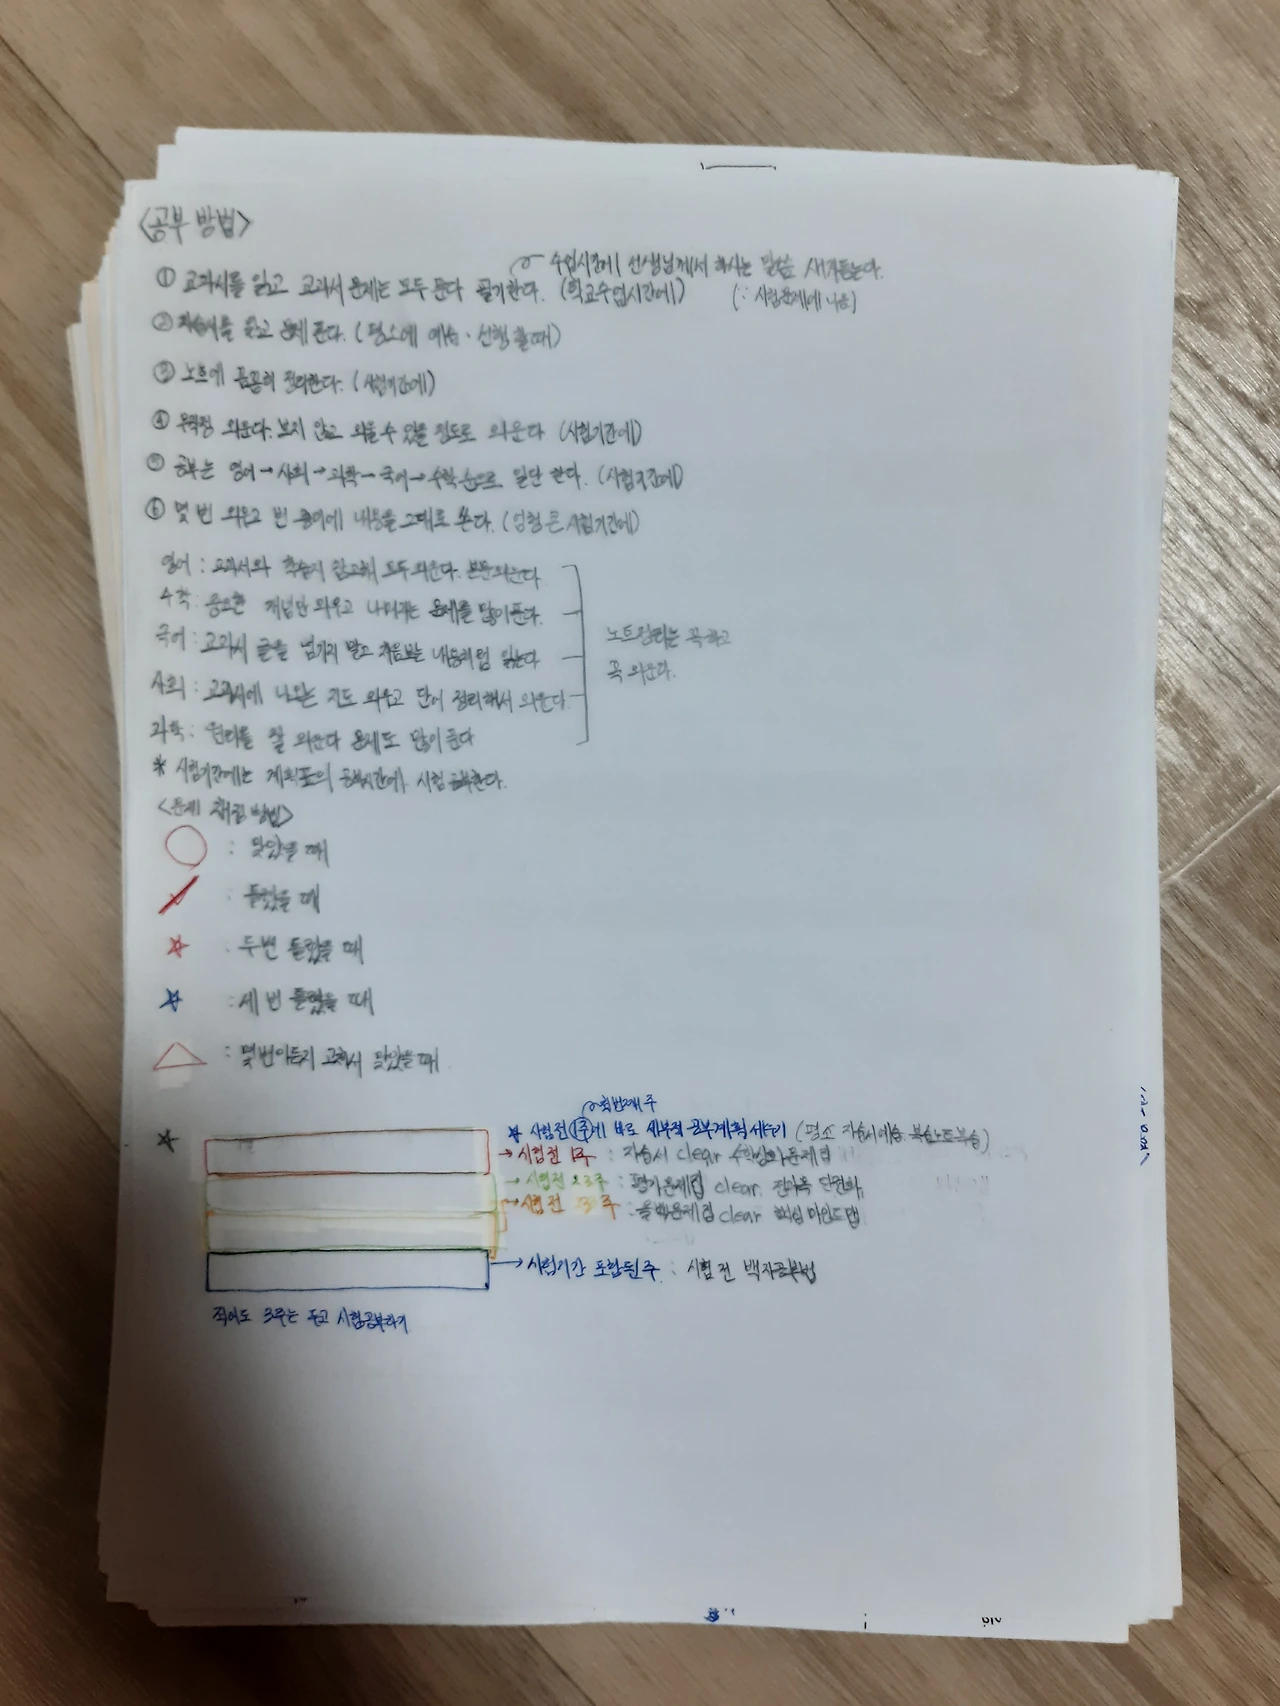 <공부 방법>
수업시간에 선생님께서 하시는 말씀 새겨듣는다.
① 교과서를 읽고 교과서 문제는 모두 푼다 필기한다. (학교수업시간에) (∵ 시험문제에 나옴)
② 자습서를 읽고 문제 푼다. (평소에 예습·선행 할 때)
③ 노트에 꼼꼼히 정리한다. (시험기간에)
④ 무작정 외운다. 보지 않고 외울 수 있을 정도로 외운다 (시험기간에)
⑤ 공부는 영어→사회→과학→국어→수학 순으로 일단 한다. (시험 직전에)
⑥ 몇 번 외우고 빈 종이에 내용을 그대로 쓴다. (시험기간에)
영어 : 교과서와 학습지 모두 외운다. 본문 외운다
수학 : 중요한 개념만 외우고 나머지는 문제를 많이 푼다.
국어 : 교과서 글을 넘기지 말고 처음보는 내용처럼 읽는다
노트정리는 꼭 하고
꼭 외운다.
사회 : 교과서에 나오는 지도 외우고 단어 정리해서 외운다.
과학 : 원리를 잘 외운다 문제도 많이 푼다
* 시험기간에는 계획표의 공부시간에 시험 공부한다.
<문제 채점 방법>
: 맞았을 때
: 틀렸을 때
: 두번 틀렸을 때
: 세 번 틀렸을 때
: 몇번이든지 고쳐서 맞았을 때
첫번째 주
★ 시험전 1주에 바로 세부적 공부계획 세우기 (평소 자습서예습, 복습노트복습)
→ 시험전 1주 : 자습서 clear 수학심화문제집
→ 시험전 2 3주 : 평가문제집 clear. 단원화
→ 시험 전 3주 : 문제집 clear 핵심 마인드맵
→ 시험기간 포함된 주 : 시험 전 백지공부법
적어도 3주는 두고 시험공부하기